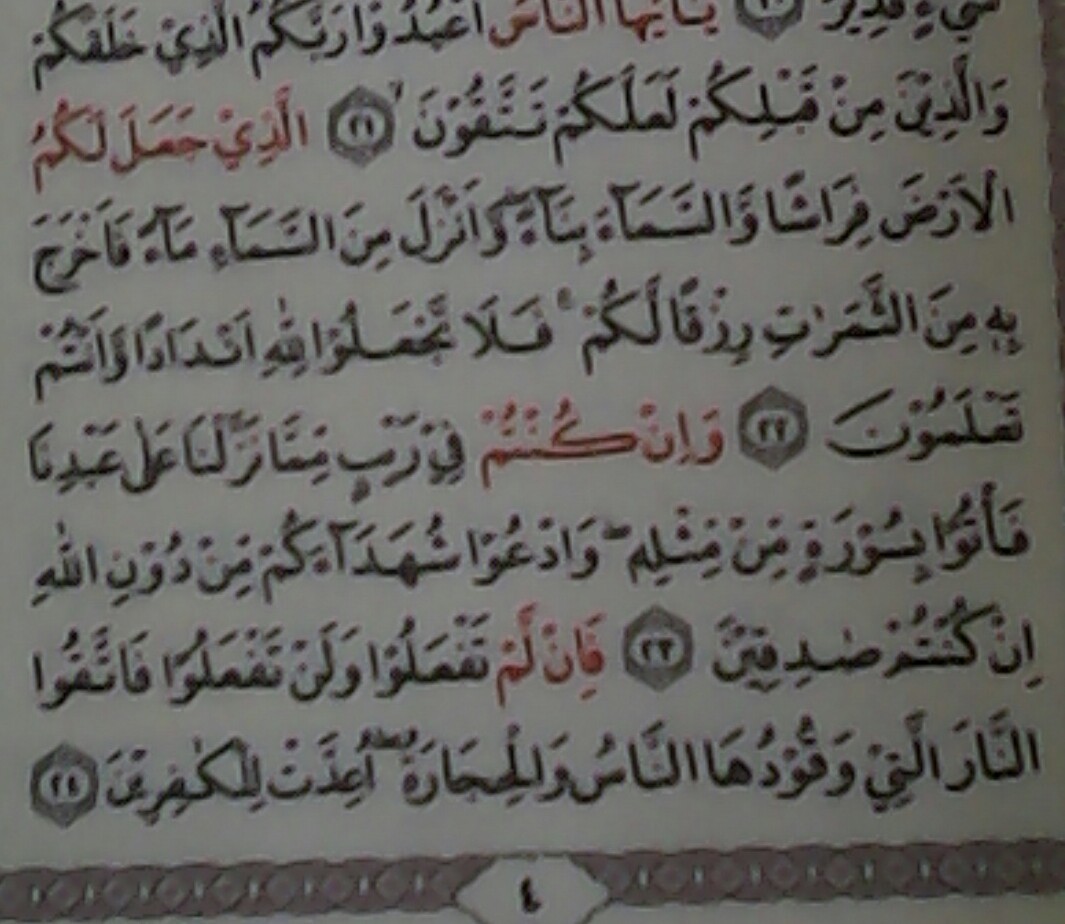 شَيْءٍ قَدِيْرٌ ۝٢٠ يٰٓاَيُّهَا النَّاسُ اعْبُدُوْا رَبَّكُمُ الَّذِيْ خَلَقَكُمْ
وَالَّذِيْنَ مِنْ قَبْلِكُمْ لَعَلَّكُمْ تَتَّقُوْنَۙ ۝٢١ الَّذِيْ جَعَلَ لَكُمُ
الْاَرْضَ فِرَاشًا وَّالسَّمَاۤءَ بِنَاۤءً ۖوَّاَنْزَلَ مِنَ السَّمَاۤءِ مَاۤءً فَاَخْرَجَ
بِهٖ مِنَ الثَّمَرٰتِ رِزْقًا لَّكُمْ ۚ فَلَا تَجْعَلُوْا لِلّٰهِ اَنْدَادًا وَّاَنْتُمْ
تَعْلَمُوْنَ ۝٢٢ وَاِنْ كُنْتُمْ فِيْ رَيْبٍ مِّمَّا نَزَّلْنَا عَلٰى عَبْدِنَا
فَأْتُوْا بِسُوْرَةٍ مِّنْ مِّثْلِهٖ ۖ وَادْعُوْا شُهَدَاۤءَكُمْ مِّنْ دُوْنِ اللّٰهِ
اِنْ كُنْتُمْ صٰدِقِيْنَ ۝٢٣ فَاِنْ لَّمْ تَفْعَلُوْا وَلَنْ تَفْعَلُوْا فَاتَّقُوا
النَّارَ الَّتِيْ وَقُوْدُهَا النَّاسُ وَالْحِجَارَةُ ۖ اُعِدَّتْ لِلْكٰفِرِيْنَ ۝٢٤
٤